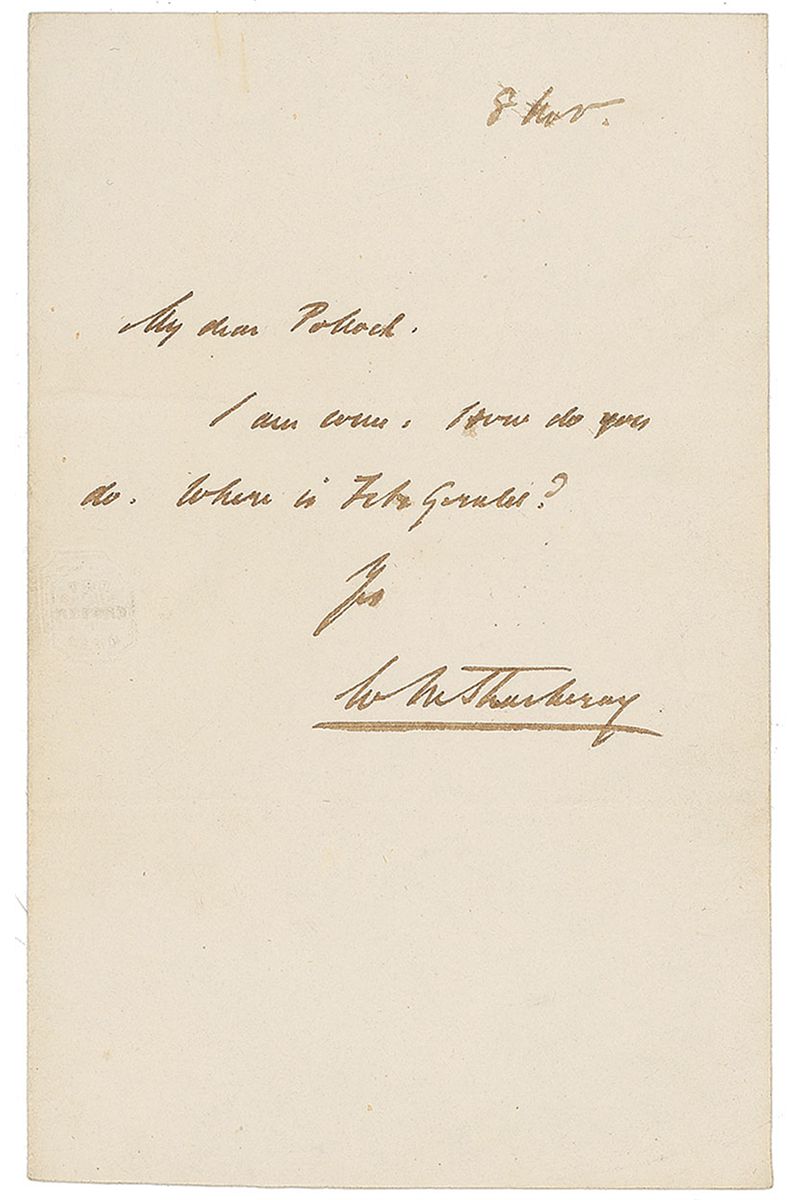 8 Nov.
My dear Pollock.
I am come. How do you
do. Where is FitzGerald?
Yrs
W M Thackeray